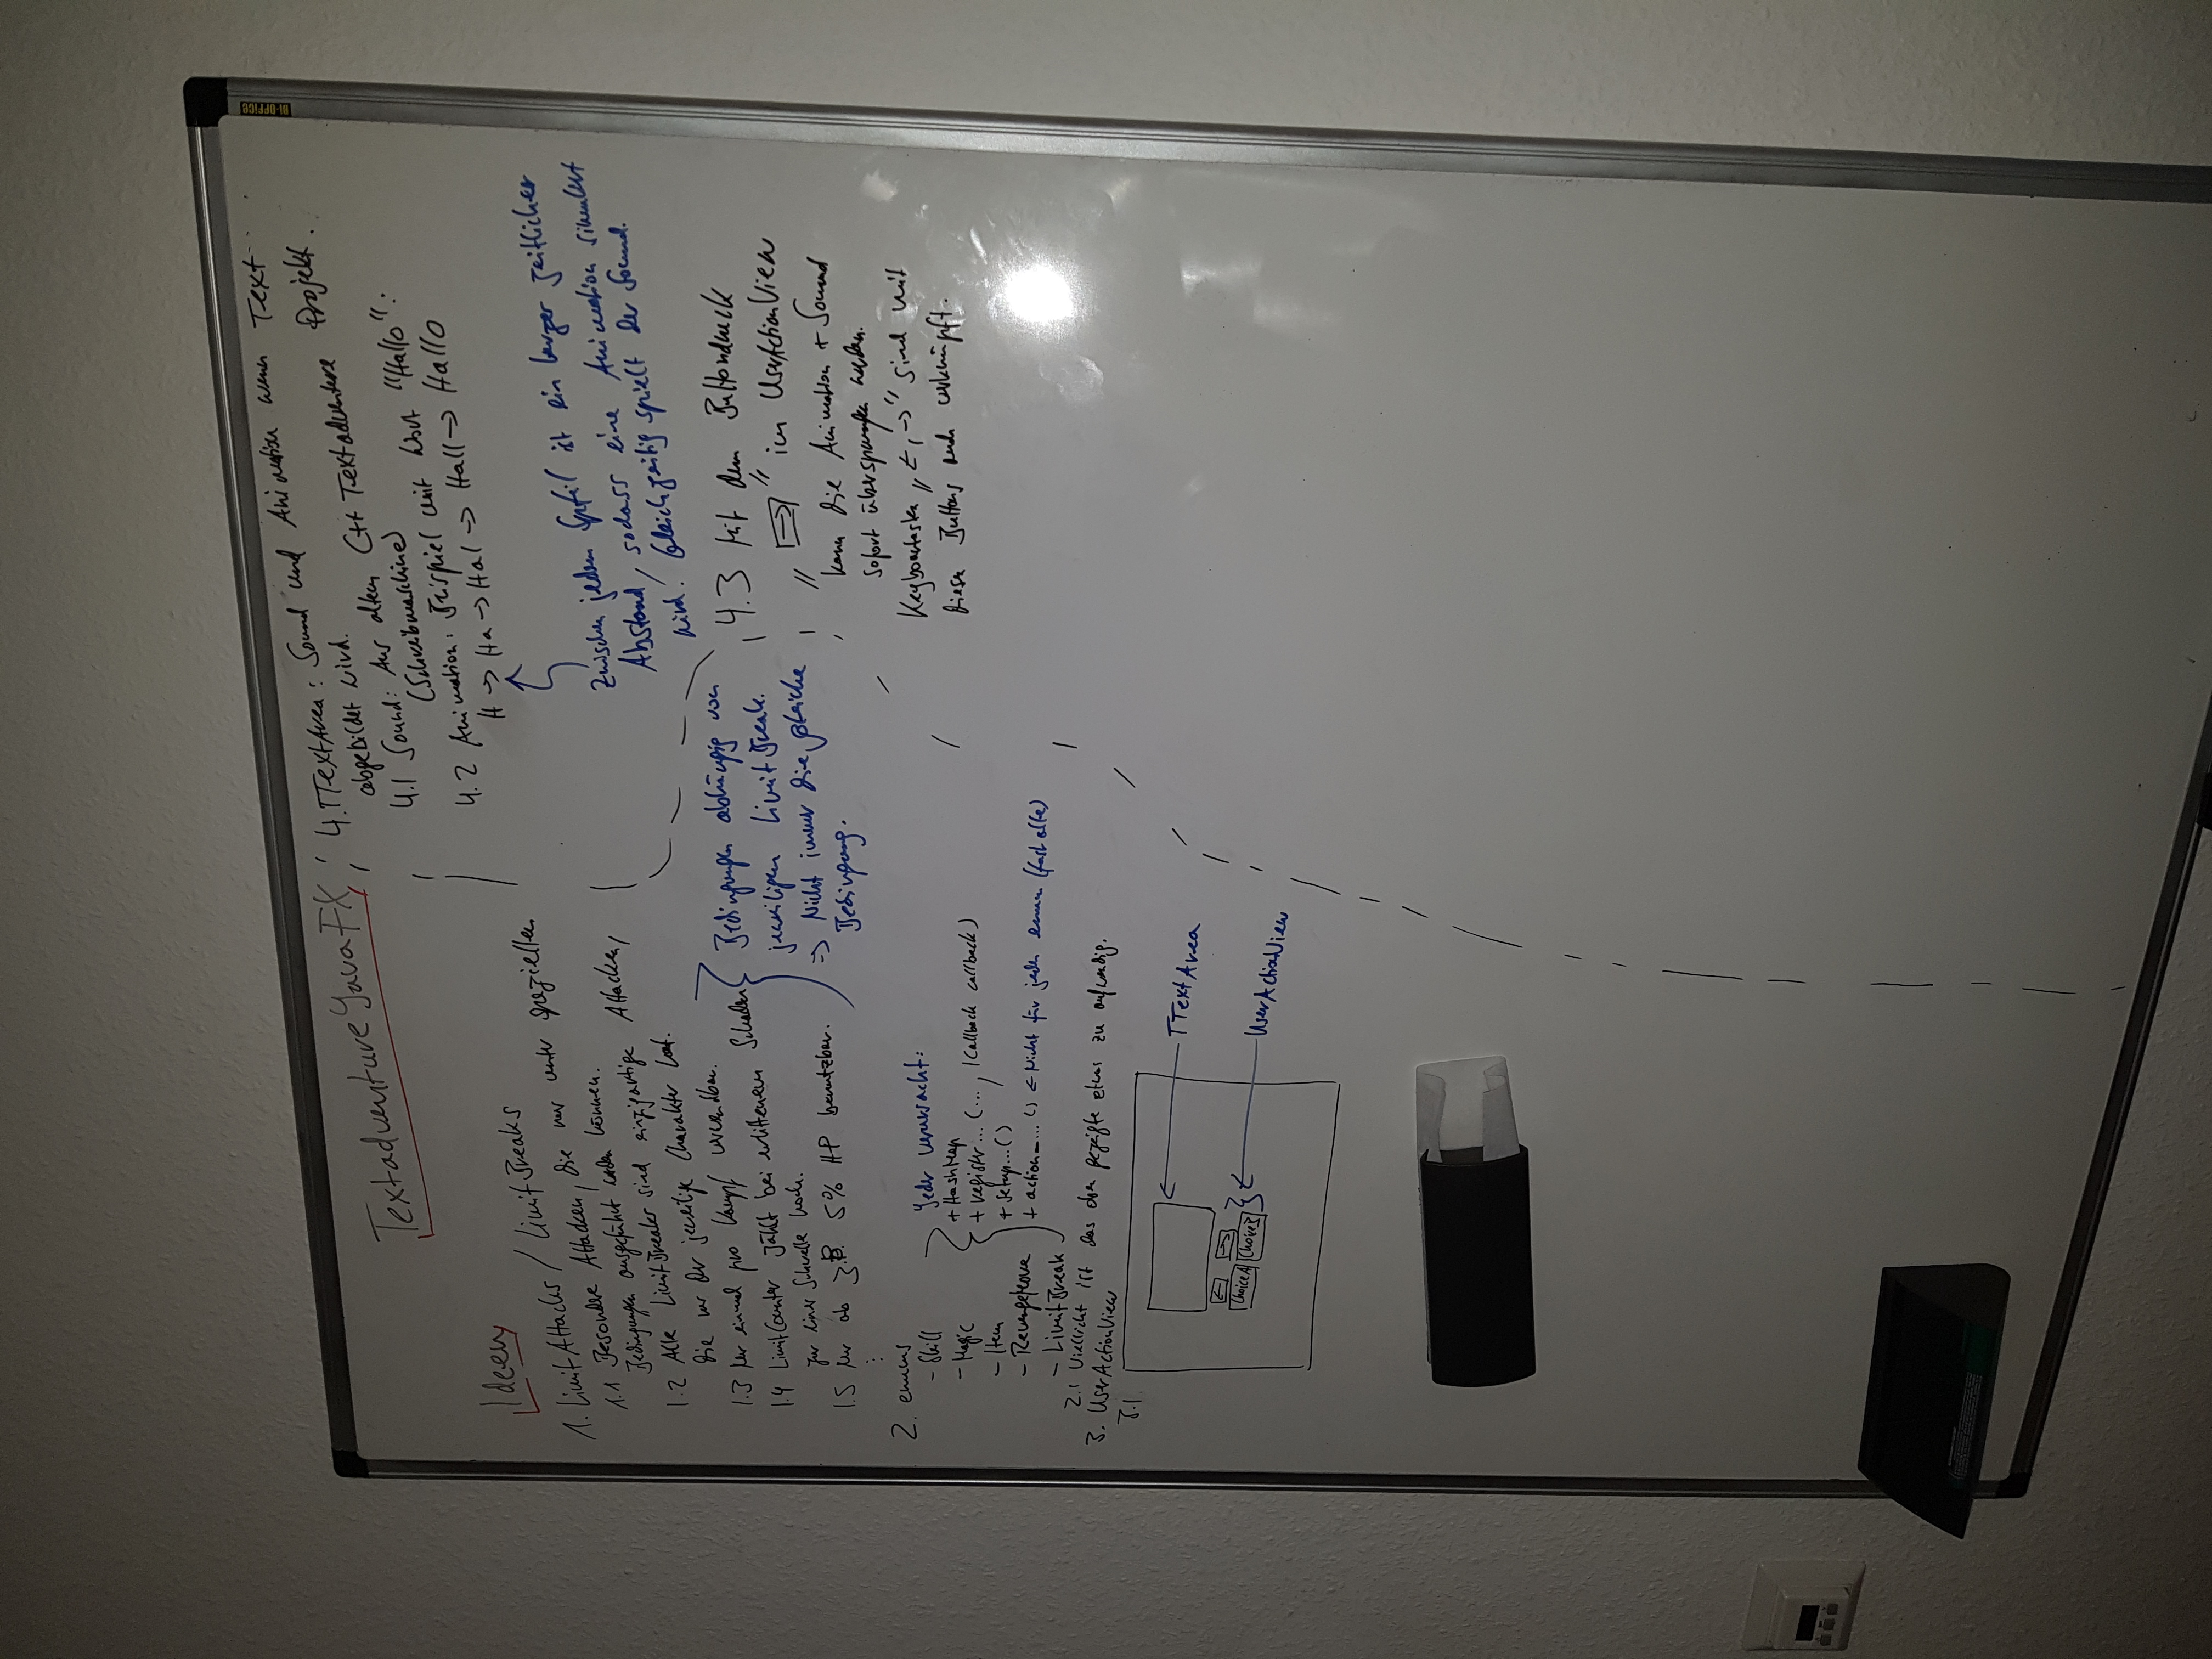 TextadventureJavaFX
Ideen
1. LimitAttacks / LimitBreaks
1.1 Besondere Attacken, die nur unter speziellen
Bedingungen ausgeführt werden können.
1.2 Alle LimitBreaks sind einzigartige Attacken,
die nur der jeweilige Charakter hat.
1.3 Nur einmal pro Kampf verwendbar.
1.4 LimitCounter zählt bei erlittenem Schaden
zur einer Schwelle hoch.
1.5 Nur ab z.B. 5% HP benutzbar.
Bedingungen abhängig vom
jeweiligen LimitBreak.
=> Nicht immer die gleiche
Bedingung.
2. enums
- Skill
- Magic
- Item
- RevengeMove
- LimitBreak
Jeder verursacht:
+ HashMap
+ register...(..., ICallback callback)
+ setup...()
+ action_...() <- Nicht für jeden enum (fast alle)
2.1 Viellicht ist das oben gezeigte etwas zu aufwendig.
3. UserActionView
3.1
TTextArea
← →
ChoiceA ChoiceB
UserActionView
4. TTextArea: Sound und Animation wenn Text
abgebildet wird.
4.1 Sound: Aus altem C++ Textadventure Projekt.
(Schreibmaschine)
4.2 Animation: Beispiel mit Wort "Hallo":
H -> Ha -> Hal -> Hall -> Hallo
Zwischen jedem Pfeil ist ein kurzer zeitlicher
Abstand, sodass eine Animation simuliert
wird. Gleichzeitig spielt der Sound.
4.3 Mit dem Buttondruck
„→" im UserActionView
kann die Animation + Sound
sofort übersprungen werden.
„←, →" sind mit
diesen Buttons auch verknüpft.
Bi-OFFICE